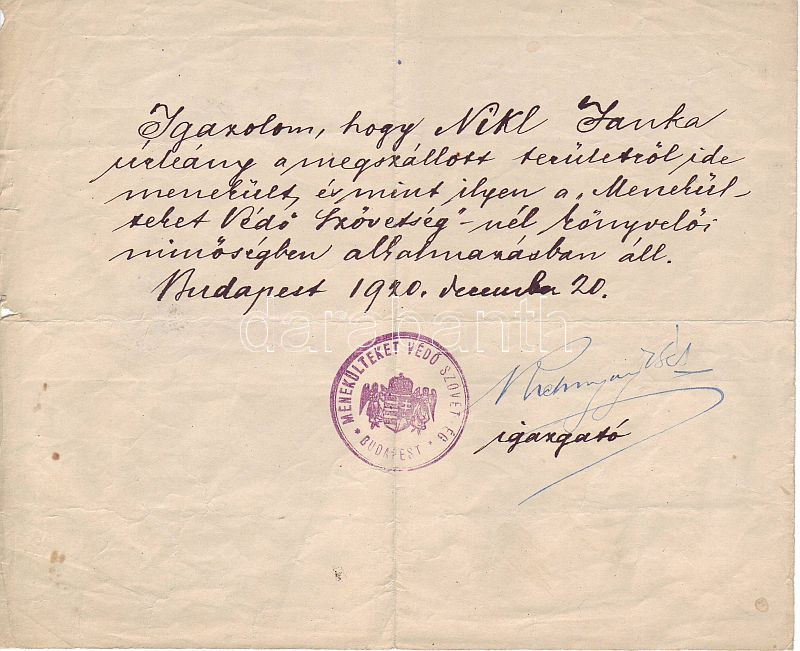 Igazolom, hogy Nikl Janka
úrleány a megszállott területről ide
menekült, és mint ilyen a „Menekül-
teket Védő Szövetség"-nél könyvelői
minőségben alkalmazásban áll.
Budapest 1920. december 20.
darabanth
MENEKÜLTEKET VÉDŐ SZÖVET ÉG
* BUDAPEST *
igazgató